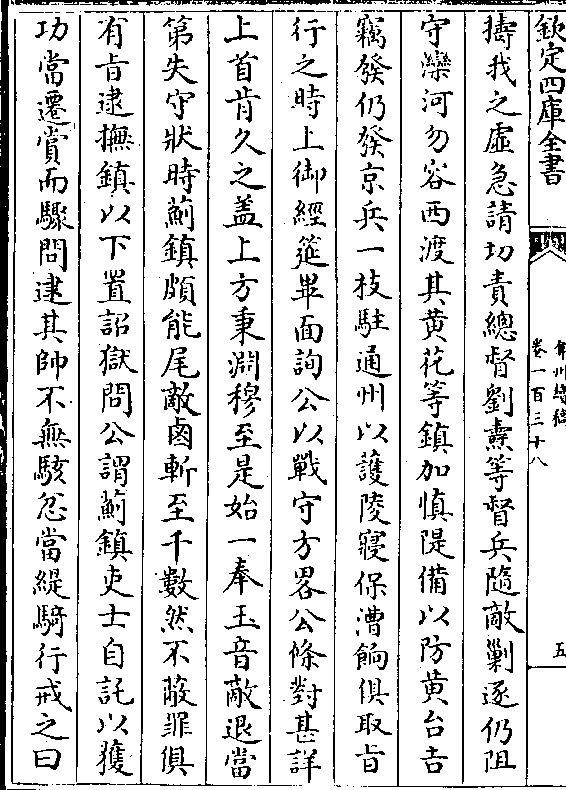 欽定四庫全書
擣我之虛急請切責總督劉燾等督兵隨敵剿逐仍阻
守灤河勿容西渡其黄花等鎮加慎隄備以防黄台吉
竊發仍發京兵一枝駐通州以護陵寢保漕餉俱取旨
行之時上御經筵畢面詢公以戰守方畧公條對甚詳
上首肯久之盖上方秉淵穆至是始一奉玉音敵退當
第失守狀時薊鎮頗能尾敵鹵斬至千數然不蔽罪俱
有旨逮撫鎮以下置詔獄問公謂薊鎮吏士自託以獲
功當遷賞而驟問逮其帥不無駭忿當緹騎行戒之曰
弇州續稿
卷一百三十八
五